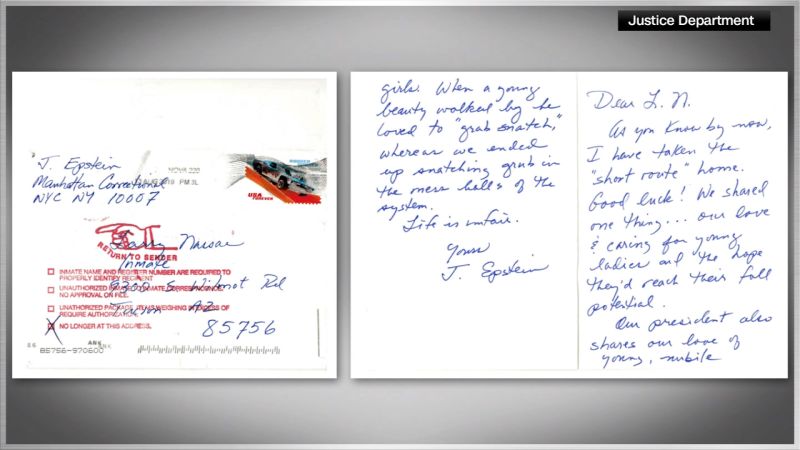 Justice Department
J. Epstein
Manhattan Correctional
NYC NY 10007
PM 3L
USA
FOREVER
RETURN TO SENDER
Larry Nassar
Inmate
9300 S Wilmot Rd
Tucson AZ
85756
INMATE NAME AND REGISTER NUMBER ARE REQUIRED TO
PROPERLY IDENTIFY RECIPIENT
UNAUTHORIZED CORRESPONDENCE
NO APPROVAL ON FILE.
UNAUTHORIZED PACKAGE WEIGHING OF
REQUIRE AUTHORIZATION
X NO LONGER AT THIS ADDRESS.
ANK
85756-970600
Dear L. N.
As you know by now,
I have taken the
"short route" home.
Good luck! We shared
one thing... our love
& caring for young
ladies and the hope
they'd reach their full
potential.
Our president also
shares our love of
young, nubile
girls. When a young
beauty walked by he
loved to "grab snatch,"
whereas we ended
up snatching grub in
the mess halls of the
system.
Life is unfair.
Yours
J. Epstein